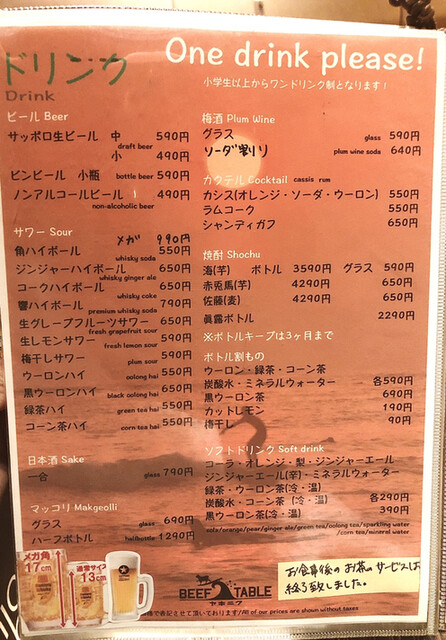 ドリンク
Drink
One drink please!
小学生以上からワンドリンク制となります!
ビール Beer
サッポロ生ビール 中 590円
draft beer
小 490円
ビンビール 小瓶 bottle beer 590円
ノンアルコールビール 490円
non-alcoholic beer
サワー Sour
メガ 990円
角ハイボール 550円
whisky soda
ジンジャーハイボール 650円
whisky ginger ale
コークハイボール 650円
whisky cake
響ハイボール 790円
premium whisky soda
生グレープフルーツサワー 650円
fresh grapefruit sour
生レモンサワー 590円
fresh lemon sour
梅干しサワー plum sour 590円
ウーロンハイ oolong hai 550円
黒ウーロンハイ black oolong hai 650円
緑茶ハイ green tea hai 550円
コーン茶ハイ corn tea hai 550円
日本酒 Sake
一合 glass 790円
マッコリ Makgeolli
グラス glass 690円
ハーフボトル halfbottle 1290円
メガ角
17cm
通常サイズ
13cm
梅酒 Plum Wine
グラス glass 590円
ソーダ割り plum wine soda 640円
カクテル Cocktail cassis rum
カシス(オレンジ・ソーダ・ウーロン) 550円
ラムコーク 550円
シャンディガフ 650円
焼酎 Shochu
海(芋) ボトル 3590円 グラス 590円
赤兎馬(芋) 4290円 650円
佐藤(麦) 4290円 650円
眞露ボトル 2290円
※ボトルキープは3ヶ月まで
ボトル割もの
ウーロン・緑茶・コーン茶
炭酸水・ミネラルウォーター 各590円
黒ウーロン茶 690円
カットレモン 190円
梅干し 90円
ソフトドリンク Soft drink
コーラ・オレンジ・梨・ジンジャーエール
ジンジャーエール(辛)・ミネラルウォーター
緑茶・ウーロン茶(冷・温)
炭酸水・コーン茶(冷・温) 各290円
黒ウーロン茶(冷・温) 390円
cola/orange/pear/ginger ale/green tea/oolong tea/sparkling water
/corn tea/mineral water
BEEF TABLE
ヤキニク
お食事後のお茶のサービスは
終了致しました。
価格で表記させて頂いております/All of our prices are shown without taxes